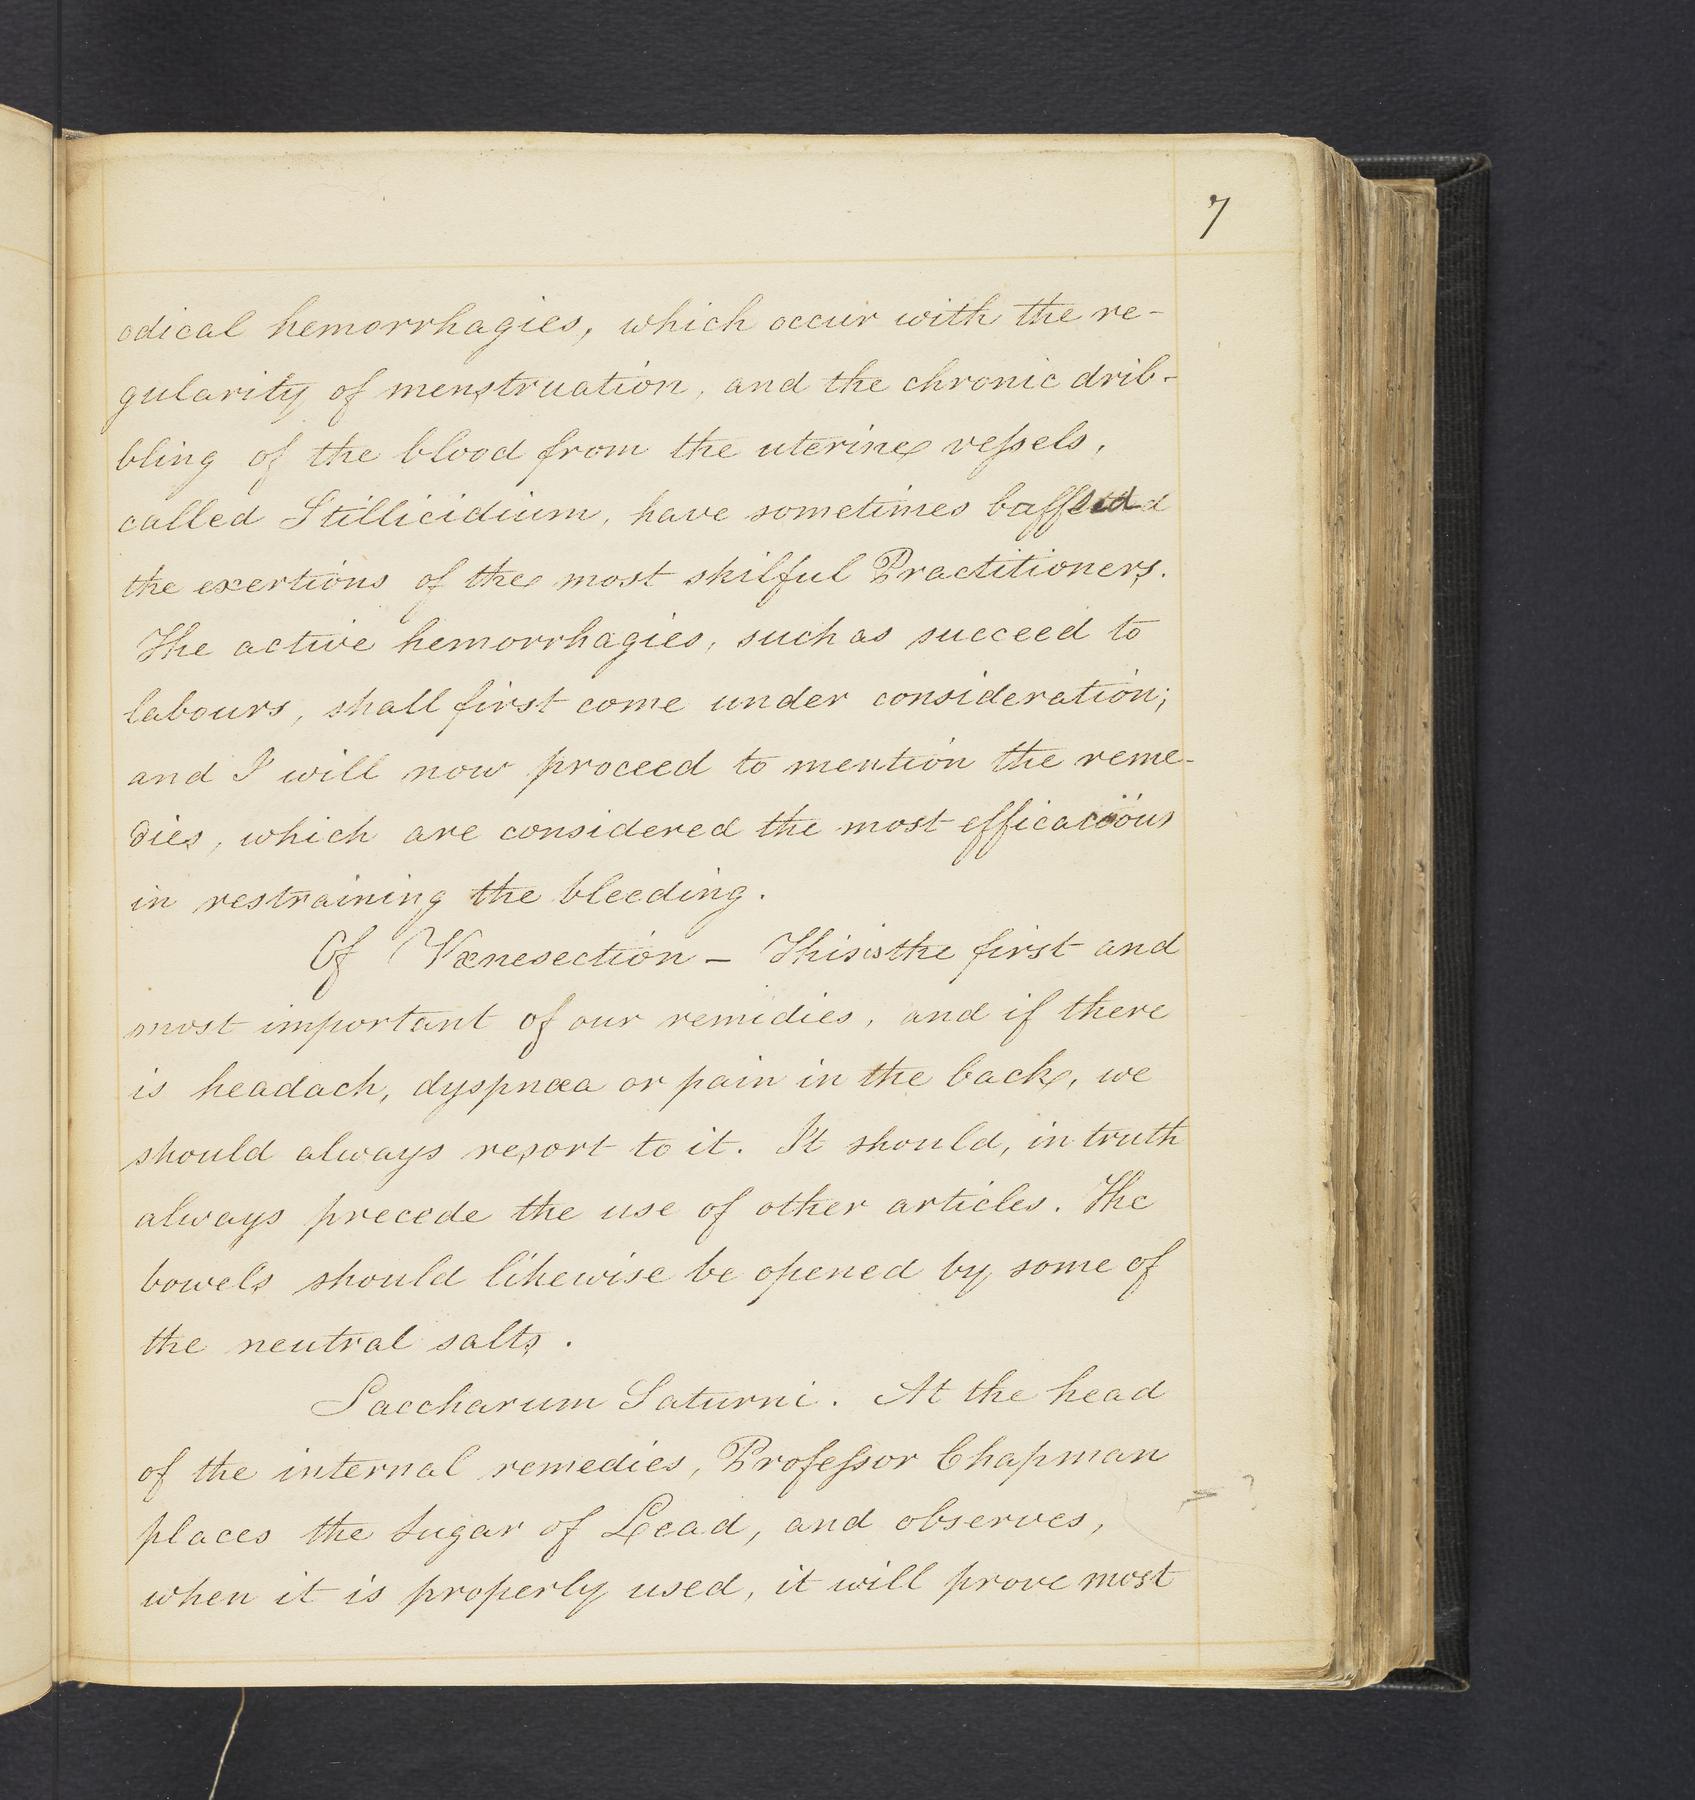 7
odical hemorrhagies, which occur with the re-
gularity of menstruation, and the chronic drib-
bling of the blood from the uterine veſsels,
called Stillicidium, have sometimes baffled
the exertions of the most skilful Practitioners.
The active hemorrhagies, such as succeed to
labours, shall first come under consideration;
and I will now proceed to mention the reme-
dies, which are considered the most efficacïöus
in restraining the bleeding.
Of Vænesection – This is the first and
most important of our remidies, and if there
is headach, dyspnœa or pain in the back, we
should always resort to it. It should, in truth
always precede the use of other articles. The
bowels should likewise be opened by some of
the neutral salts.
Saccharum Saturni. At the head
of the internal remedies, Profeſsor Chapman
places the Sugar of Lead, and observes,
when it is properly used, it will prove most